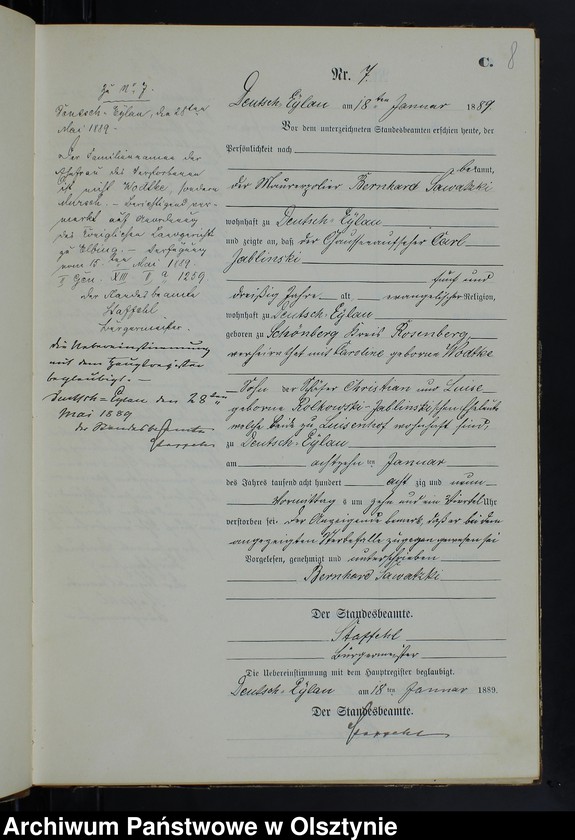 C.
8
Nr. 7.
Deutsch-Eylau am 18ten Januar 1889
Vor dem unterzeichneten Standesbeamten erschien heute, der
Persönlichkeit nach
bekannt,
der Maurerpolier Bernhard Sawatzki
wohnhaft zu Deutsch-Eylau
und zeigte an, daß der Chausseeaufseher Carl
Jablinski
fünf und
dreißig Jahre alt, evangelischer Religion,
wohnhaft zu Deutsch-Eylau
geboren zu Schönberg Kreis Rosenberg
verheirathet mit Caroline geborene Wodtke
Sohn der Schäfer Christian und Luise
geborene Rolkowski-Jablinski'schen Eheleute
welche beide zu Luisenhof wohnhaft sind,
zu Deutsch-Eylau
am achtzehnten Januar
des Jahres tausend acht hundert achtzig und neun
Vormittags um zehn und ein Viertel Uhr
verstorben sei. Der Anzeigende bemerkt, daß er bei dem
angezeigten Sterbefalle zugegen gewesen sei
Vorgelesen, genehmigt und unterschrieben
Bernhard Sawatzki
Der Standesbeamte.
Staffehl
Bürgermeister
Die Uebereinstimmung mit dem Hauptregister beglaubigt.
Deutsch-Eylau am 18ten Januar 1889.
Der Standesbeamte.
Staffehl
Zu No 7.
Deutsch-Eylau, den 28ten
Mai 1889.
Der Familienname der
Ehefrau des Verstorbenen
ist nicht Wodtke, sondern
Berichtigend ver-
merkt auf Anordnung
des Königlichen Landgerichts
zu Elbing. Verfügung
vom 15. ten Mai 1889.
Gen. XIII 1259
Der Standesbeamte
Staffehl
Bürgermeister.
Die Uebereinstimmung
mit dem Hauptregister
beglaubigt.
Deutsch-Eylau den 28ten
Mai 1889
Der Standesbeamte
Staffehl
Archiwum Państwowe w Olsztynie